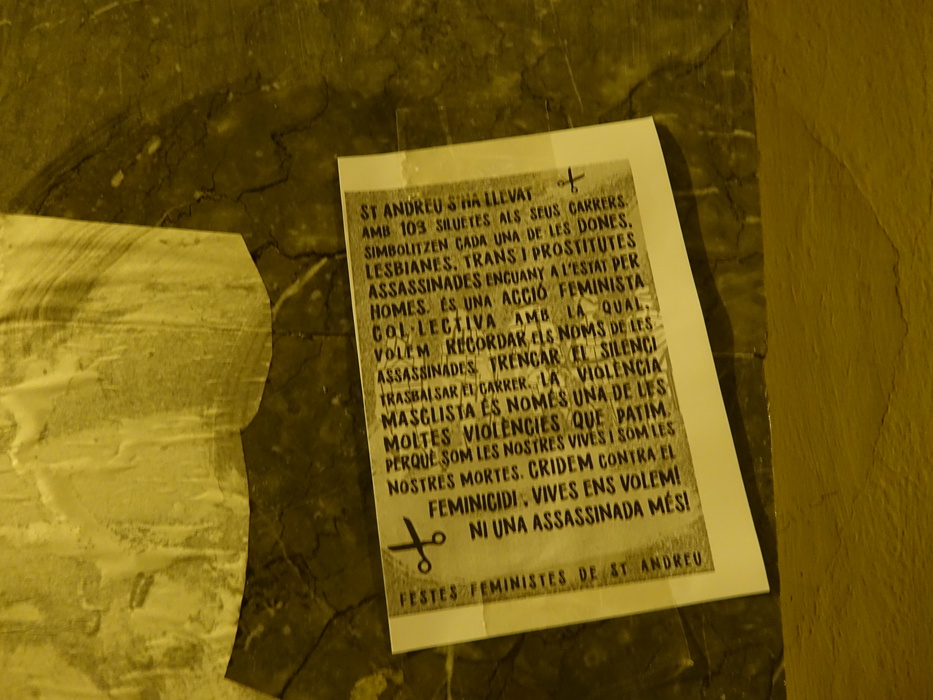 ST ANDREU S'HA LLEVAT
AMB 103 SILUETES ALS SEUS CARRERS.
SIMBOLITZEN CADA UNA DE LES DONES,
LESBIANES, TRANS I PROSTITUTES
ASSASSINADES ENGUANY A L'ESTAT PER
HOMES. ÉS UNA ACCIÓ FEMINISTA
COL·LECTIVA AMB LA QUAL,
VOLEM RECORDAR ELS NOMS DE LES
ASSASSINADES, TRENCAR EL SILENCI
TRASBALSAR EL CARRER. LA VIOLÈNCIA
MASCLISTA ÉS NOMÉS UNA DE LES
MOLTES VIOLÈNCIES QUE PATIM.
PERQUÈ SOM LES NOSTRES VIVES I SOM LES
NOSTRES MORTES. CRIDEM CONTRA EL
FEMINICIDI. VIVES ENS VOLEM!
NI UNA ASSASSINADA MÉS!
FESTES FEMINISTES DE ST ANDREU